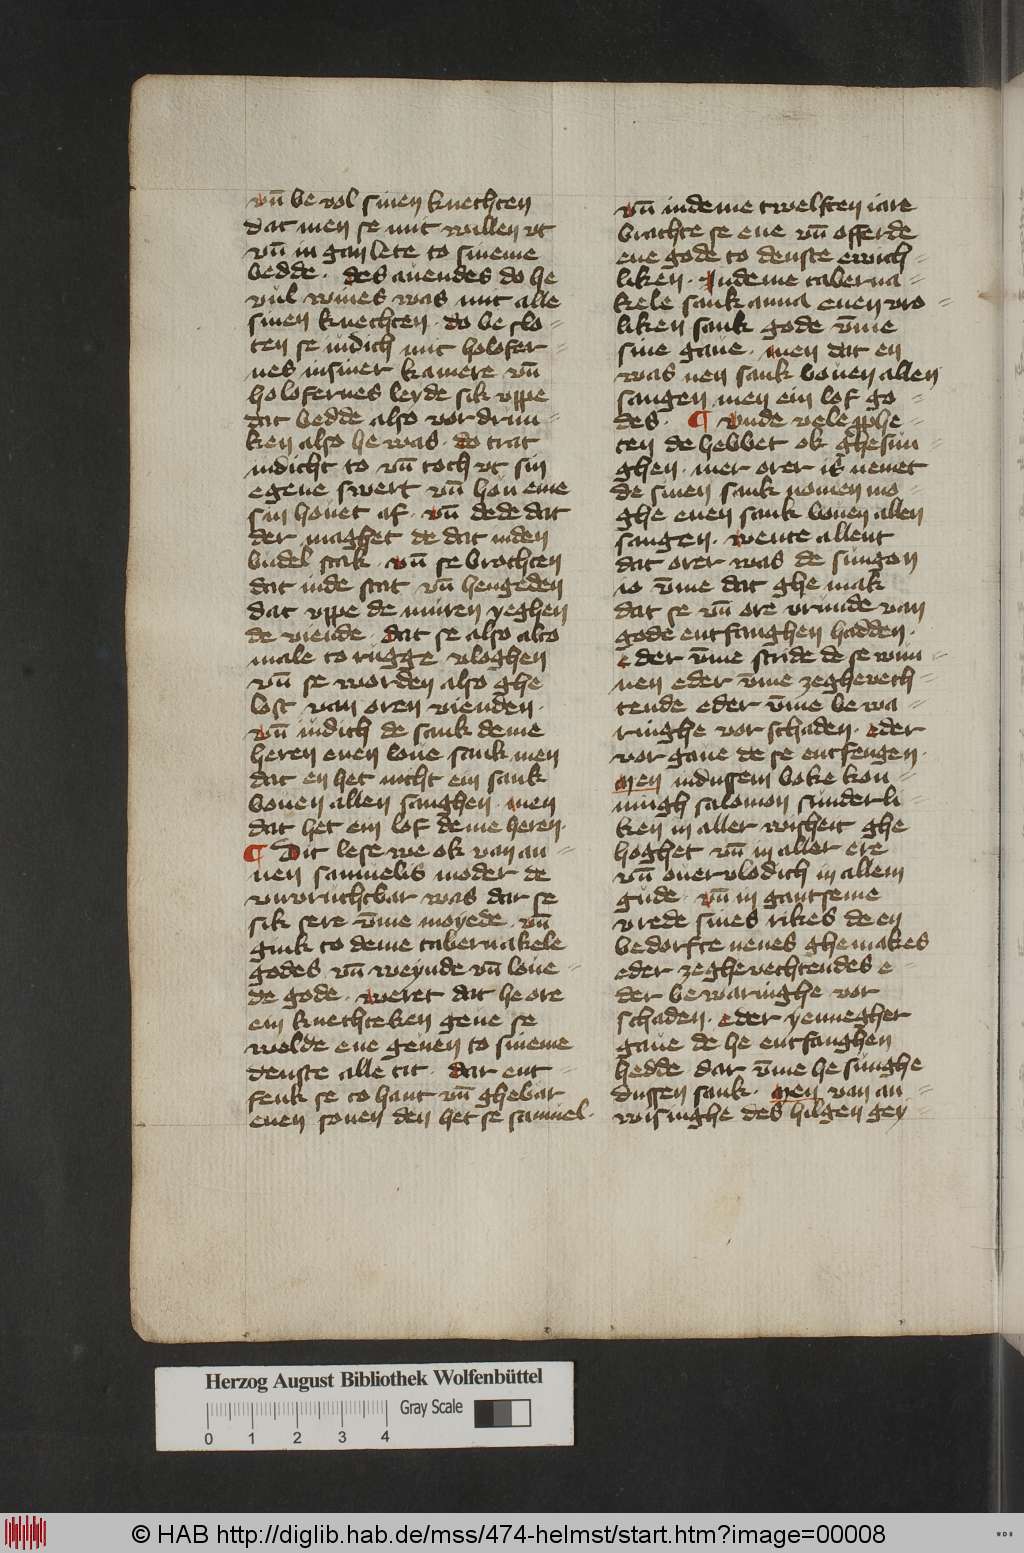 vn̄ be vol sinen knechten
dat men se mit willen vt
vn̄ in gan lete to sineme
bedde · des auendes do he
vůl wines was mit alle
sinen knechten · do be slo=
ten se iudich mit holofer=
nes insiner kamere vn̄
holofernes leyde sik vppe
dat bedde also vor drun=
ken also he was · do trat
iudicht to vn̄ toch vt sin
egene swert vn̄ hou eme
sin houet af · vn̄ dede dat
der maghet de dat inden
budel stak · vn̄ se brochten
dat inde stat vn̄ hengeden
dat vppe de muren yeghen
de viende · dat se also alto
male to rugge vloghen
vn̄ se worden also ghe
lost van oren vienden ·
vn̄ iudich de sank deme
heren enen loue sank men
dat en het nicht ein sank
bouen allen sanghen · men
dat het ein lof deme heren ·
¶ Dit lese we ok van an=
nen samuelis moder de
vnvruchtbar was dar se
sik sere v̄me moyede · vn̄
gink to deme tabernakele
godes vn̄ weynde vn̄ loue=
de gode · weret dat he ore
ein knechteken geue se
wolde ene geuen to sineme
denste alle tit · dar ent=
fenk se to hant vn̄ ghebar
enen sonen den het se samuel ·
vn̄ indeme twelften iare
brachte se ene vn̄ offerde
ene gode to denste ewich=
liken · Indeme taberna=
kele sank anna enen vro=
liken sank gode v̄me
sine gaue · men dat en
was nen sank bouen allen
sangen men ein lof go=
des · ¶ vnde vele pphe=
ten de hebbet ok ghesun=
ghen · mer orer is nemet
de sinen sank nomen mo=
ghe enen sank bouen allen
sangen · wente allent
dat orer was de sungon
io v̄me dat ghe mak
dat se vn̄ ore vrunde van
gode entfanghen hadden ·
eder v̄me stride de se wun=
nen eder v̄me zeghevech=
tende eder v̄me be wa=
ringhe vor schaden · eder
vor gaue de se entfengen ·
men indussem boke kon=
ningh salomon sunderli=
ken in aller wisheit ghe
hoghet vn̄ in aller ere
vn̄ ouervlodich in allem
gude · vn̄ in gantseme
vrede sines rikes de en
bedorfte nenes ghemakes
eder zeghevechtendes e=
der be waringhe vor
schaden · eder yennegher
gaue de he entfanghen
hedde dar v̄me he sunghe
dussen sank · men van an=
wisinghe des hilgen gey=
Herzog August Bibliothek Wolfenbüttel
Gray Scale
0 1 2 3 4
© HAB http://diglib.hab.de/mss/474-helmst/start.htm?image=00008